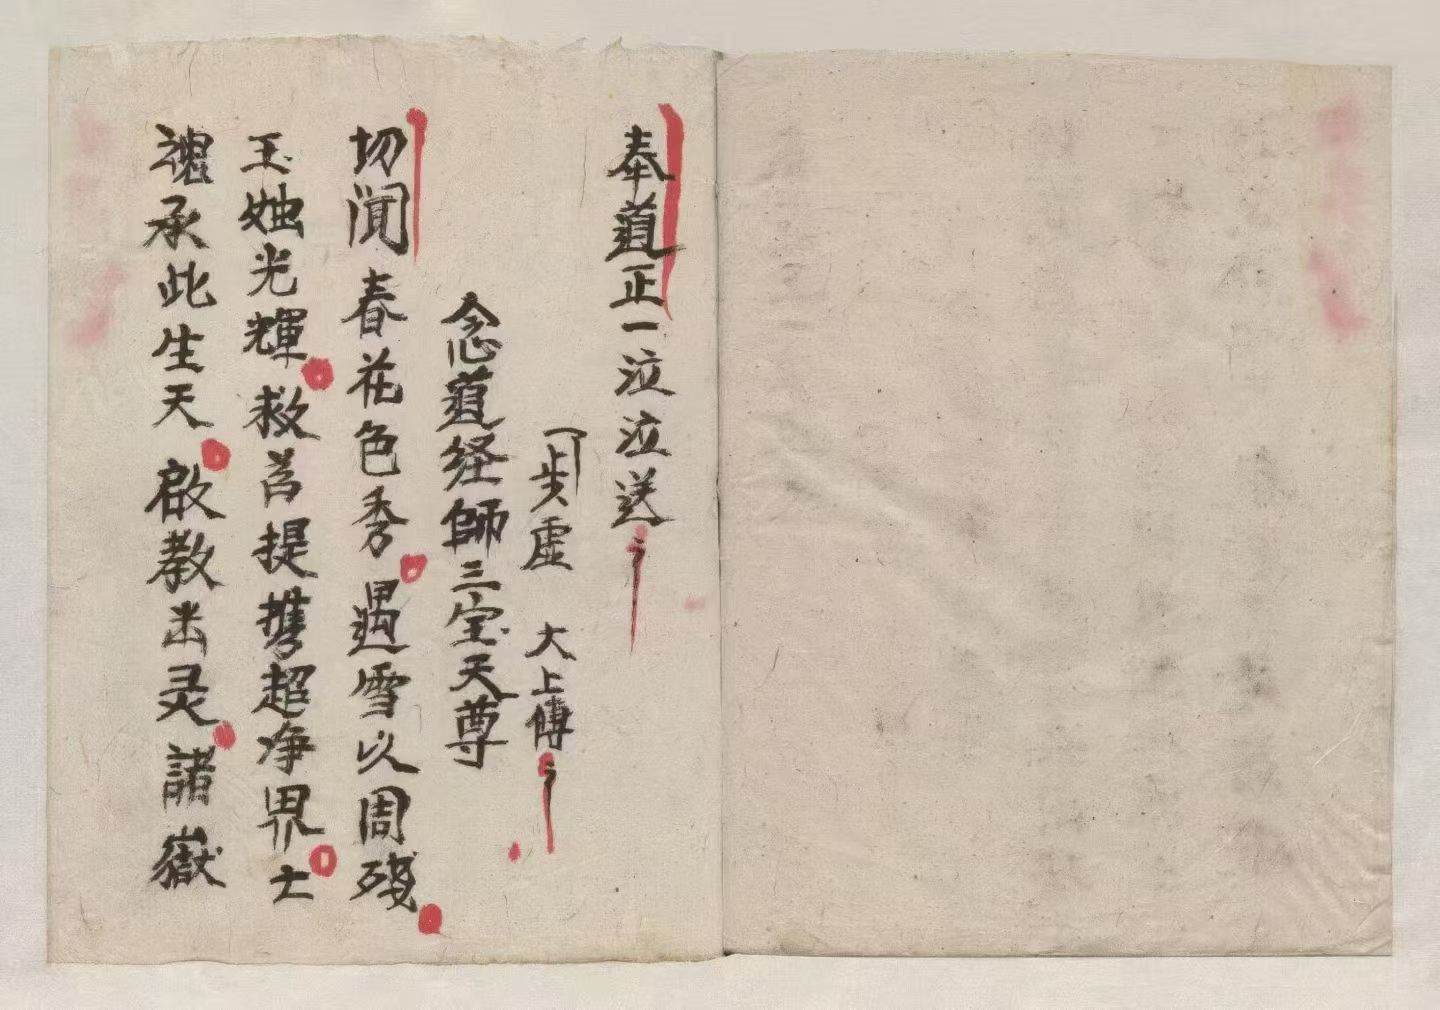 奉道正一泣泣送
步虛 大上傳
念道経師三宝天尊
切聞春花色秀遇雪以周残
玉妯光輝救苦提携超净界士
魂承此生天啟教出灵諸嶽